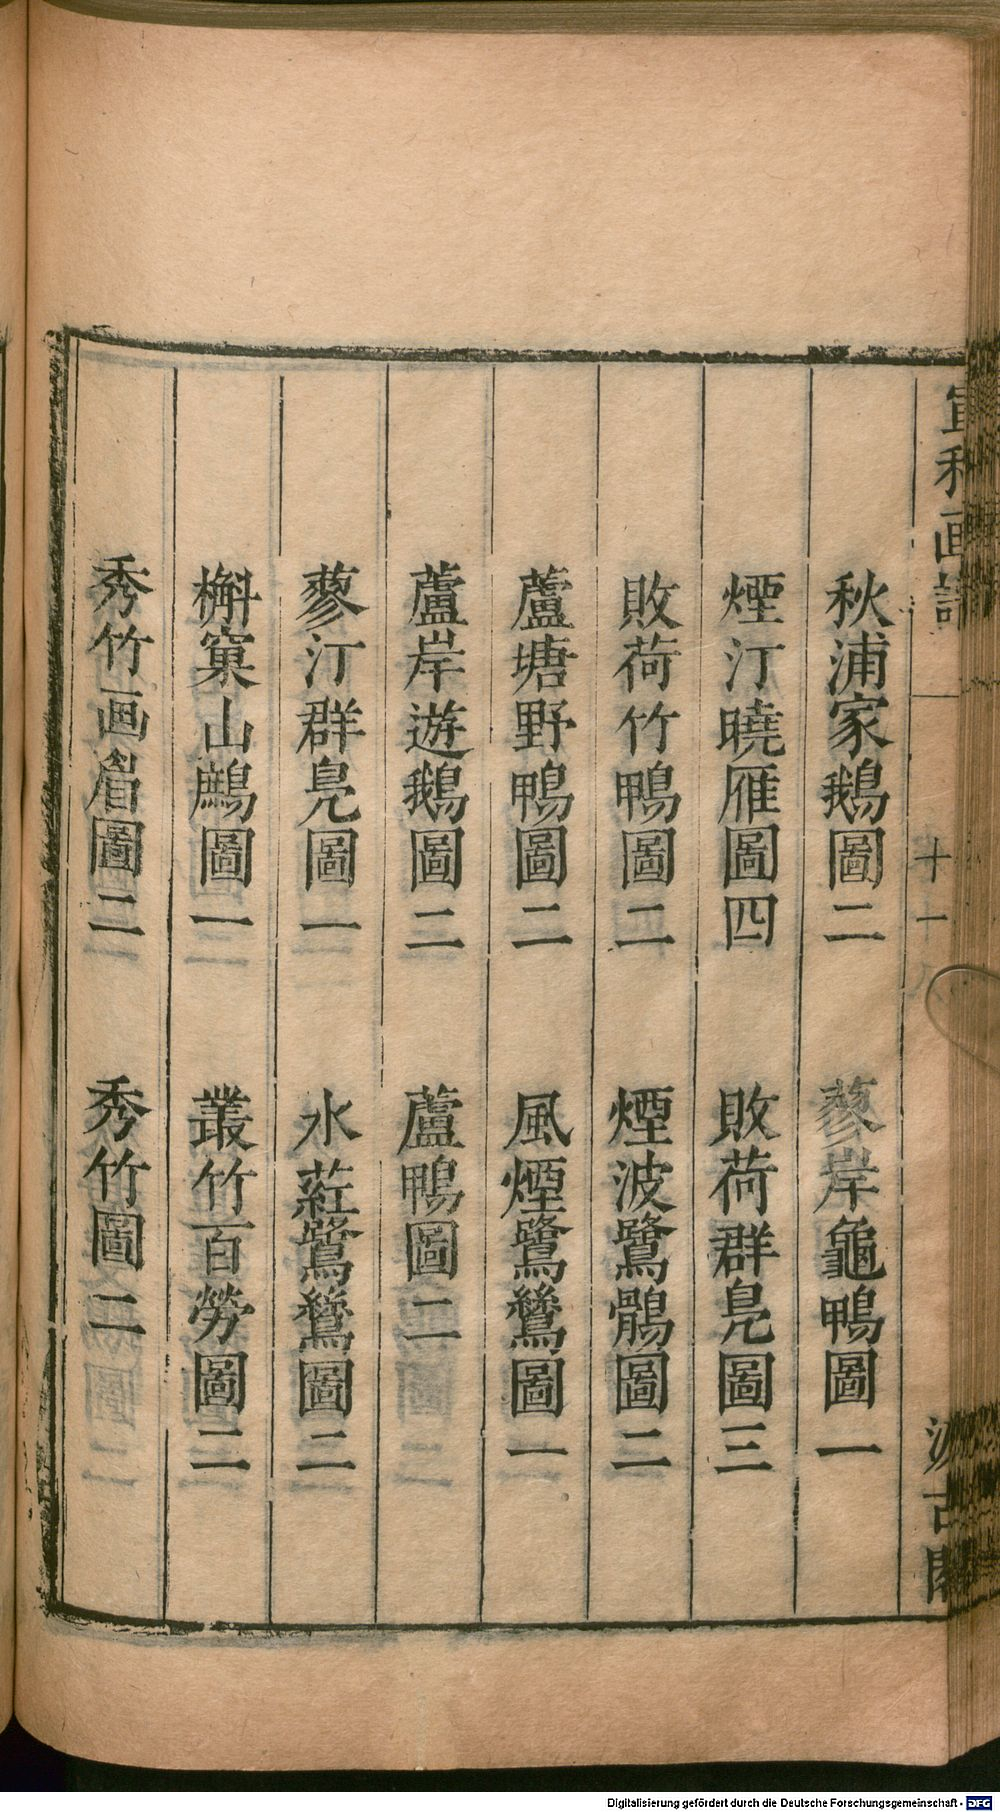 宣和画譜
十一
汲古閣
秋浦家鵝圖二 蓼岸龜鴨圖一
煙汀曉雁圖四 敗荷群鳧圖三
敗荷竹鴨圖二 煙波鷺鶿圖二
蘆塘野鴨圖二 風煙鷺鷥圖一
蘆岸遊鵝圖二 蘆鴨圖二
蓼汀群鳧圖一 水葒鷺鷥圖二
槲窠山鷓圖一 叢竹百勞圖二
秀竹画眉圖二 秀竹圖二
Digitalisierung gefördert durch die Deutsche Forschungsgemeinschaft - DFG